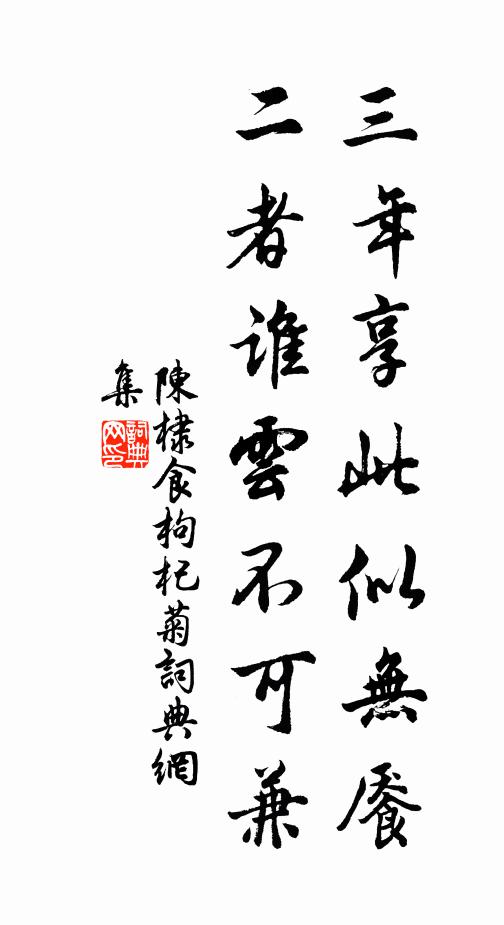 三年享此似無饜
二者誰雲不可兼
陳棣食枸杞菊詞典網
集
詞典
网印